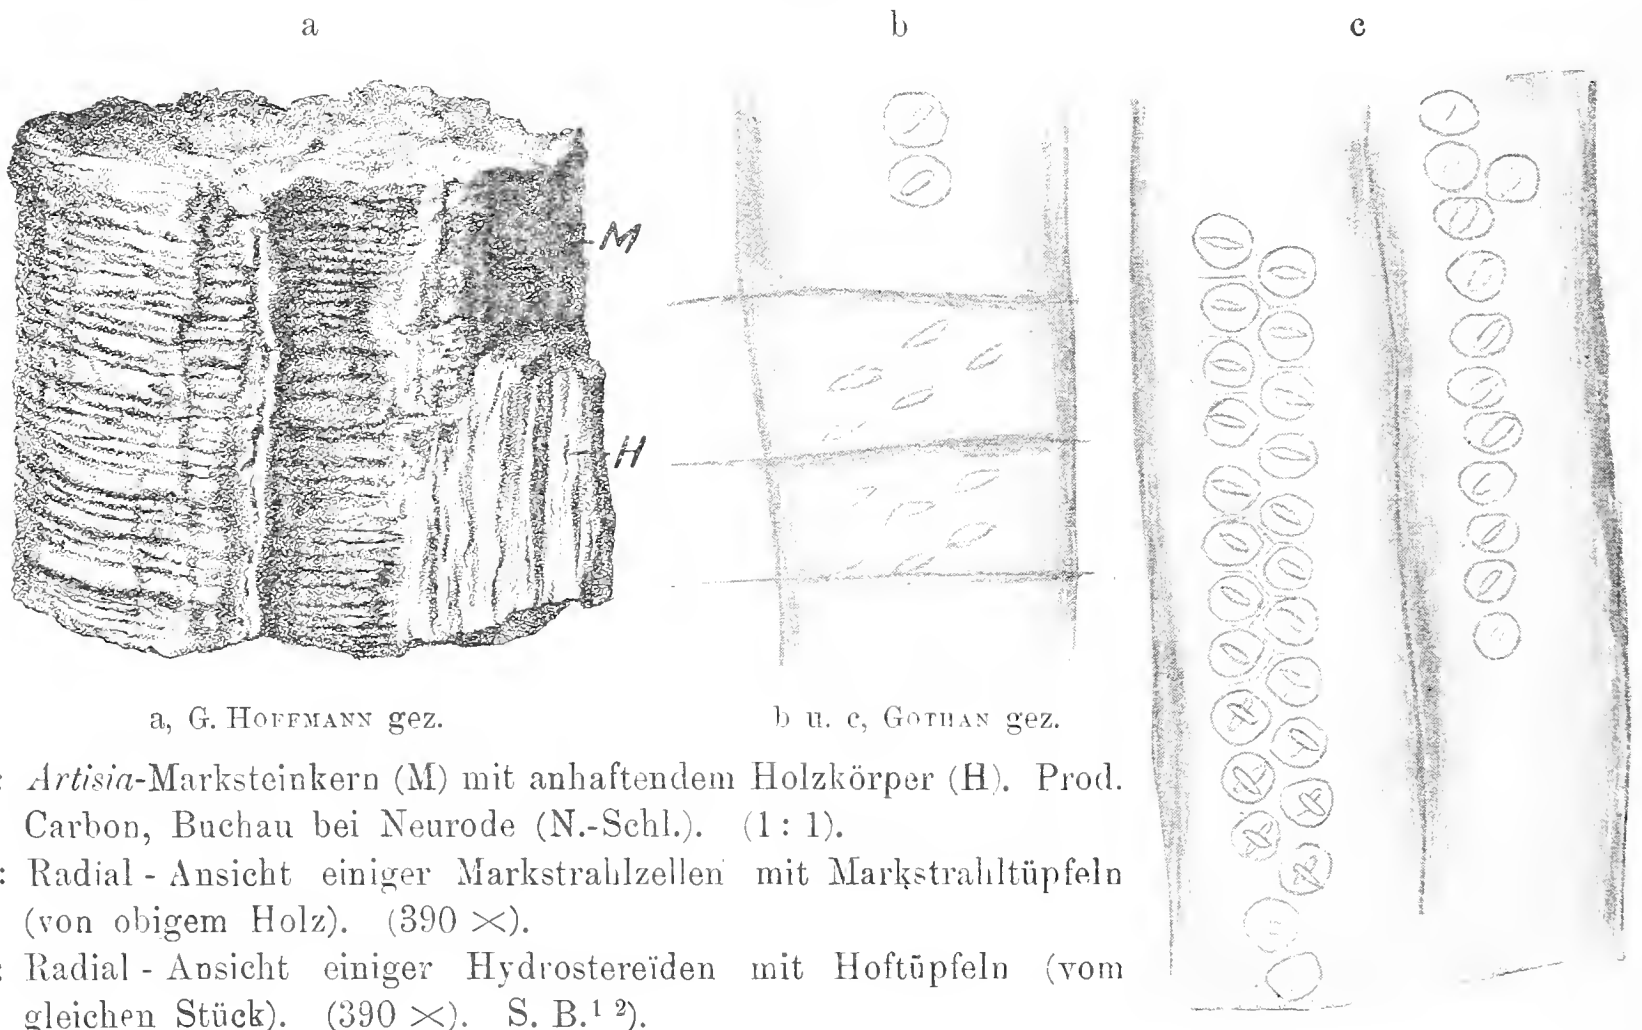 a
b
c
M
H
a, G. HOFFMANN gez.
b u. c, GOTHAN gez.
: Artisia-Marksteinkern (M) mit anhaftendem Holzkörper (H). Prod.
Carbon, Buchau bei Neurode (N.-Schl.). (1 : 1).
: Radial - Ansicht einiger Markstrahlzellen mit Markstrahltüpfeln
(von obigem Holz). (390 ×).
: Radial - Ansicht einiger Hydrostereïden mit Hoftüpfeln (vom
gleichen Stück). (390 ×). S. B.¹ ²).